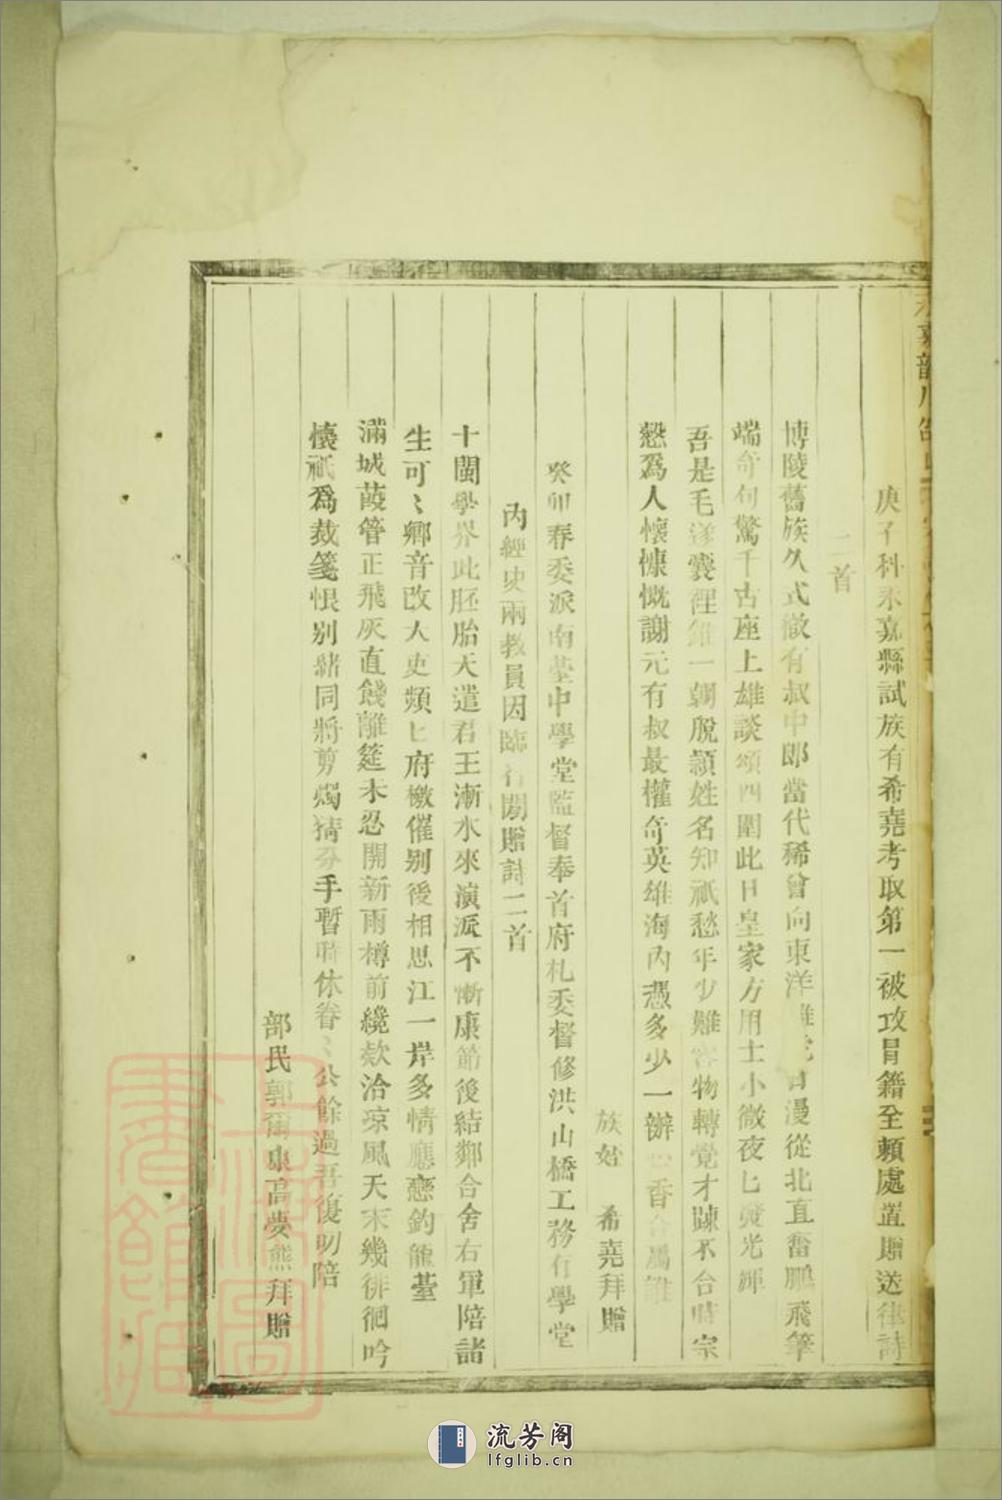 庚子科永嘉縣試族有希堯考取第一被攻冒籍全賴處置贈送律詩
二首
博陵舊族久式微有叔中郎當代稀曾向東洋 漫從北直奮鵬飛筆
端奇句驚千古座上雄談頌四圍此日皇家方用士小微夜匕發光輝
吾是毛遂囊裡錐一朝脫穎姓名知祇愁年少難容物轉覺才踈不合時宗
慤爲人懷慷慨謝元有叔最權奇英雄海內憑多少一瓣 香合屬誰
族姪 希堯拜贈
癸卯春委派南臺中學堂監督奉首府札委督修洪山橋工務有學堂
內經史兩教員因臨 贈詩二首
十閩學界此胚胎天遣君王漸水來演派不慚康節後結鄰合舍右軍陪諸
生可〻鄉音改大吏頻匕府檄催別後相思江一岸多情應戀釣龍臺
滿城葭管正飛灰直餞離筵未忍開新雨樽前纔欵洽涼風天末幾徘徊吟
懷祇爲裁箋恨别緒同將剪燭猜分手暫時休眷〻公餘過吾復叨陪
部民郭爾康高夢熊拜贈
流芳阁
lfglib.cn